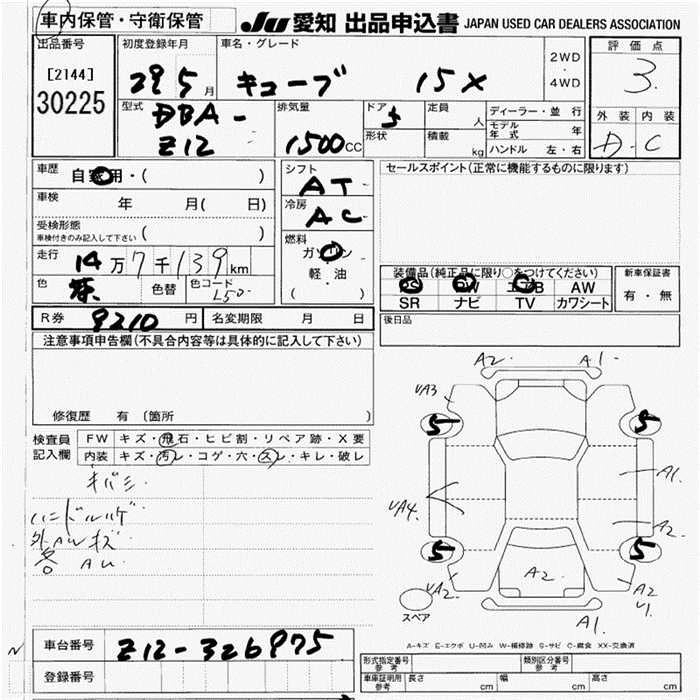 車内保管・守衛保管 JU 愛知 出品申込書 JAPAN USED CAR DEALERS ASSOCIATION
出品番号 初度登録年月 車名・グレード 評価点
[2144] 29 5月 キューブ 15X 2WD・4WD 3
30225
型式 DBA-Z12 排気量 1500CC ドア 5 定員 人 ディーラー・並行 外装 内装
形状 積載 kg モデル年式 年 D - C
ハンドル 左・右
車歴 自家用・( ) シフト AT セールスポイント(正常に機能するものに限ります)
車検 年 月( 日) 冷房 AC
受検形態
車検付きのみ記入して下さい ( ) 燃料 ガソリン
走行 14万7千139km 軽・油 装備品(純正品に限り○をつけてください) 新車保証書
色 茶 色替 色コード L50 ( ) PS PW エアB AW 有・無
SR ナビ TV カワシート
R券 9210円 名変期限 月 日 後日品
注意事項申告欄(不具合内容等は具体的に記入して下さい)
修復歴 有 〔箇所
検査員 FW キズ・飛石・ヒビ割・リペア跡・X要
記入欄 内装 キズ・汚レ・コゲ・穴・スレ・キレ・破レ
キバミ
ハンドルハゲ
外AWキズ
各 AU
A2 A1
VA3 5 5
VA4 A1
A2
5 5
VA2 A2 A2
V1
スペア A1
A-キズ E-エクボ U-凹み W-補修跡 S-サビ C-腐食 XX-交換済
N 車台番号 Z12-326975
登録番号
形式指定番号 参考 類別区分番号 参考
車庫証明用 参考 長さ cm 幅 cm 高さ cm